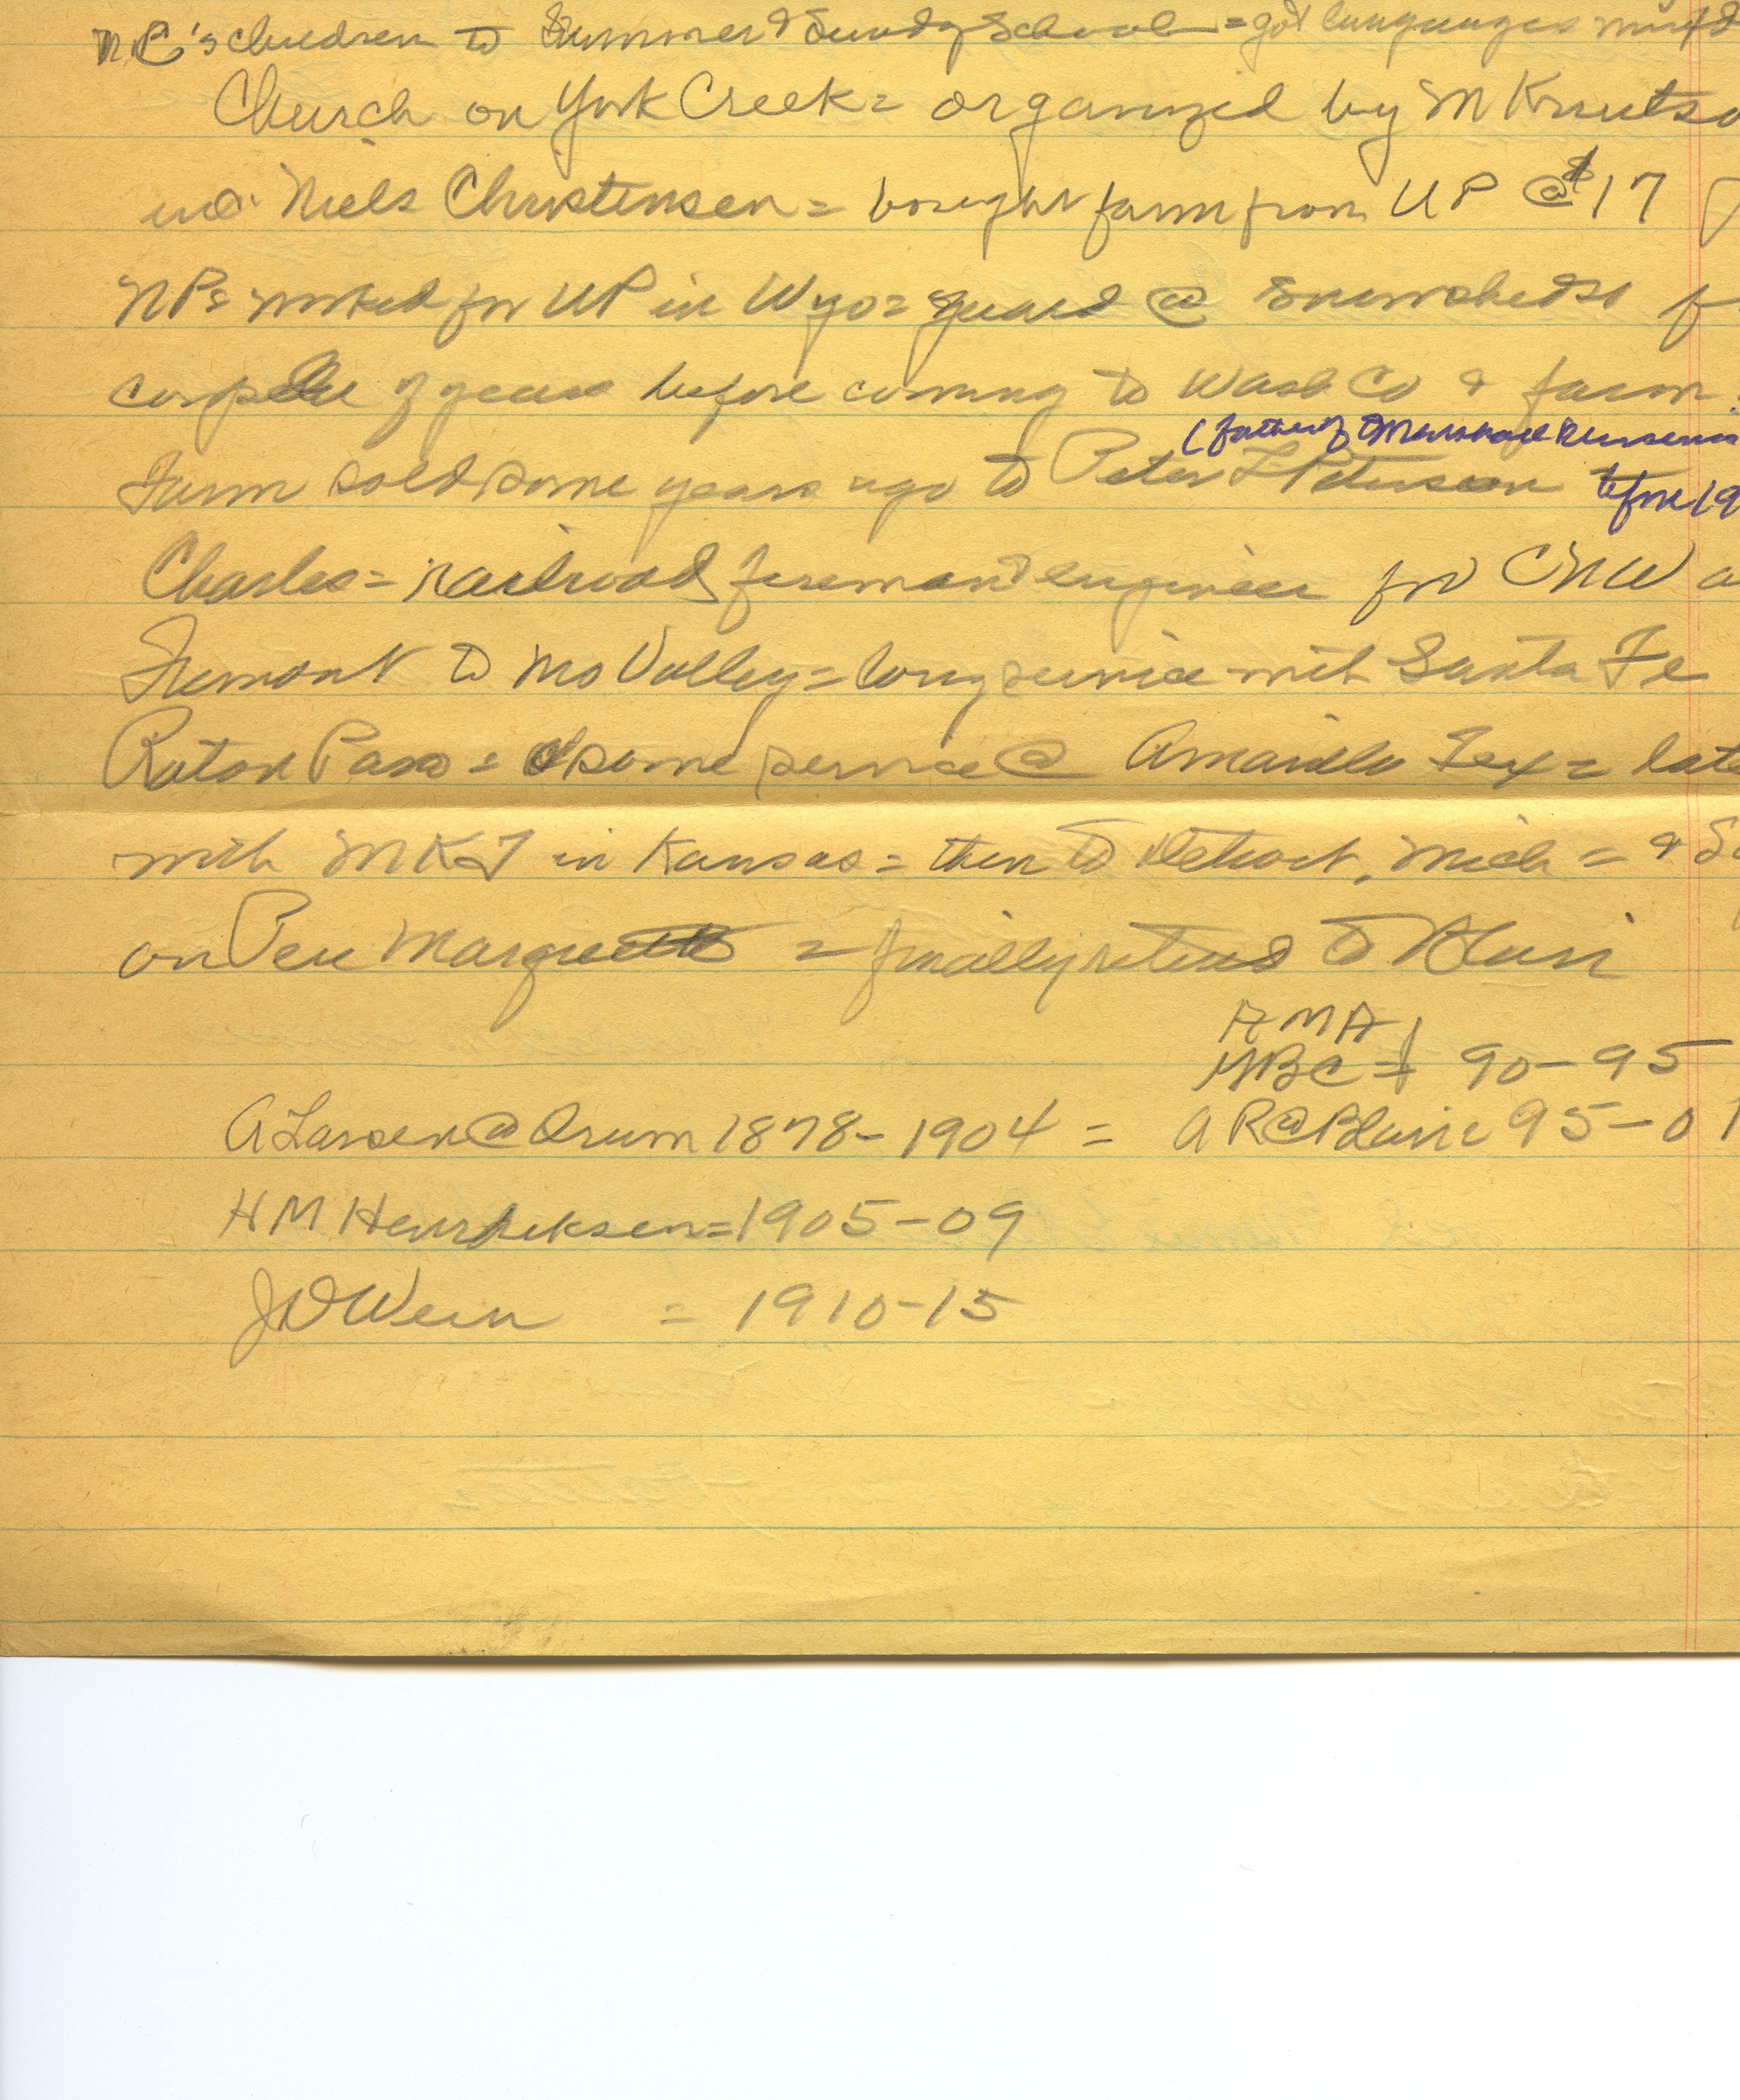 NC's children to Summer & Sunday School = got languages mixed
Church on York Creek = organized by M Knutso
Niels Christensen = bought farm from UP @ $17
NPs worked for UP in Wyo = guard @ snowsheds f
couple of years before coming to Wash Co & farm
(father of Marshall
Farm sold some years ago to Peter L Petersen before 19
Charles = railroad fireman & engineer for CNW a
Fremont to Mo Valley = long service with Santa Fe
Raton Pass = some service @ Amarillo Tex = late
with MK&T in Kansas = then to Detroit, Mich = &
on Pere Marquette = finally retired to Blair
AMA
90-95
A Larsen @ Orum 1878-1904 = AR @ Blair 95-0
HM Hendricksen = 1905-09
JD Wein = 1910-15